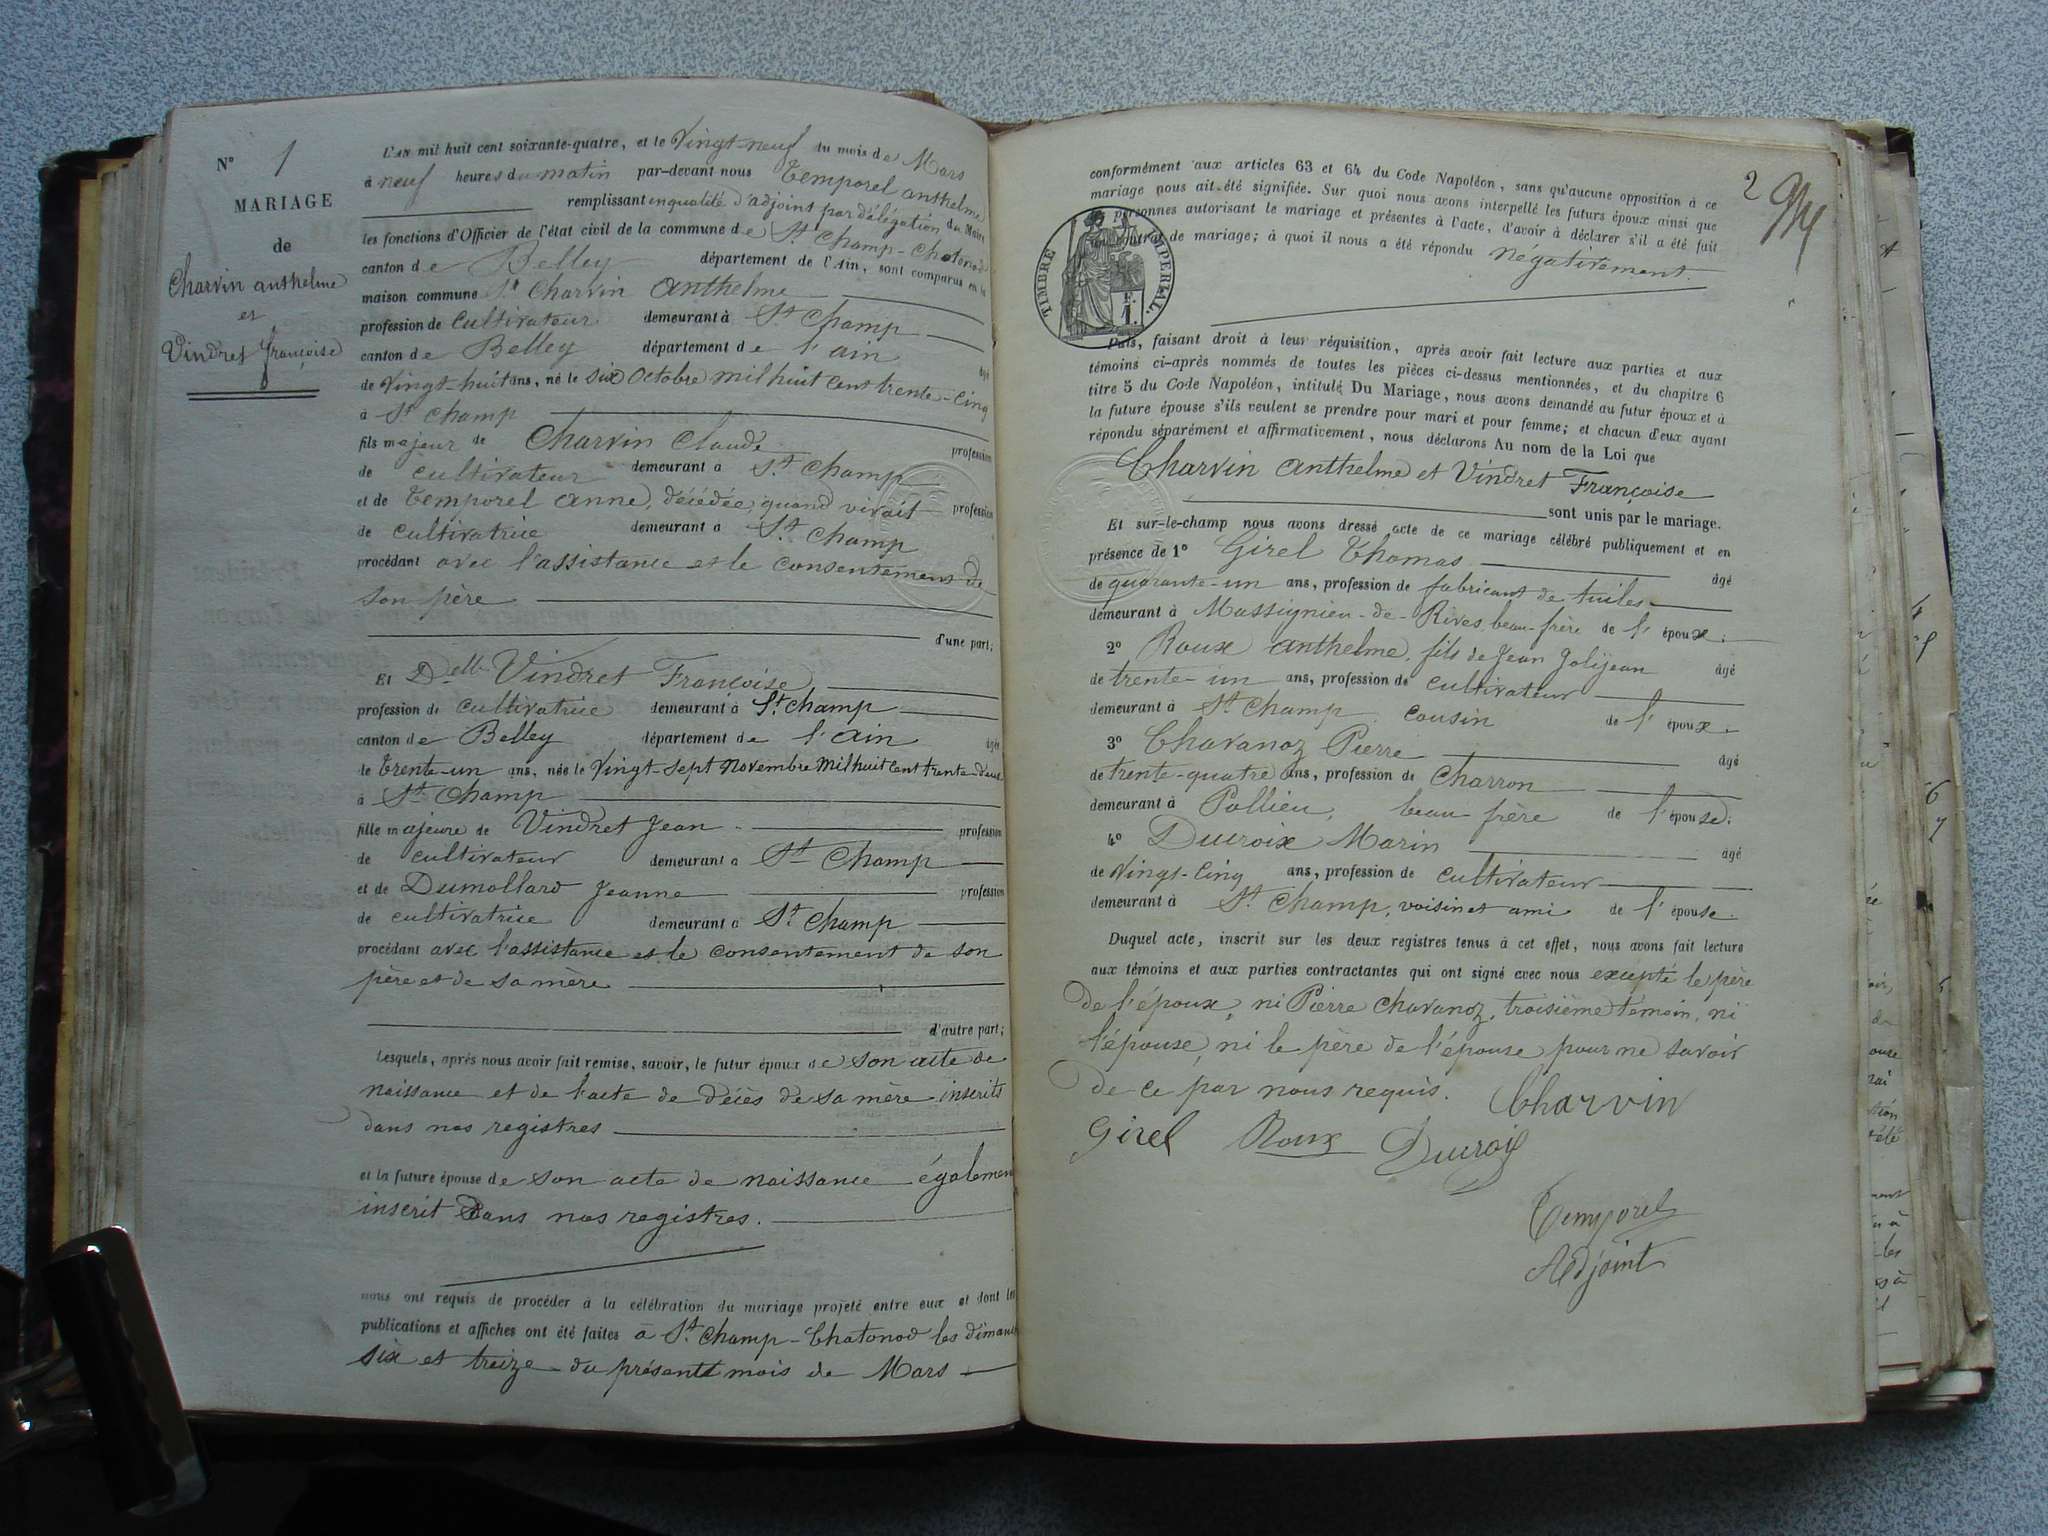 N° 1
MARIAGE
de
Charvin anthelme
et
Vindret françoise
L'AN mil huit cent soixante-quatre, et le Vingt-neuf du mois de Mars
à neuf heures du matin par-devant nous Temporel anthelme
remplissant en qualité d'adjoint par délégation du Maire
les fonctions d'Officier de l'état civil de la commune de St Champ-Chatonod
canton de Belley département de l'Ain, sont comparus en la
maison commune Sr Charvin Anthelme
profession de Cultivateur demeurant à St Champ
canton de Belley département de l'ain âgé
de Vingt-huit ans, né le six Octobre mil huit cent trente-cinq
à St Champ
fils majeur de Charvin Claude profession
de cultivateur demeurant à St Champ
et de Temporel anne, décédée, quand vivait profession
de cultivatrice demeurant à St Champ
procédant avec l'assistance et le consentement de
son père
d'une part;
Et Delle Vindret Françoise
profession de cultivatrice demeurant à St Champ
canton de Belley département de l'ain âgée
de Trente-un ans, née le Vingt-sept Novembre mil huit cent trente-deux
à St Champ
fille majeure de Vindret Jean profession
de cultivateur demeurant à St Champ
et de Dumollard Jeanne profession
de cultivatrice demeurant à St Champ
procédant avec l'assistance et le consentement de son
père et de sa mère
d'autre part;
Lesquels, après nous avoir fait remise, savoir, le futur époux de son acte de
naissance et de l'acte de décès de sa mère inscrits
dans nos registres
et la future épouse de son acte de naissance également
inscrit dans nos registres.
nous ont requis de procéder à la célébration du mariage projeté entre eux et dont les
publications et affiches ont été faites à St Champ-Chatonod les dimanches
six et treize du présent mois de Mars
2
conformément aux articles 63 et 64 du Code Napoléon, sans qu'aucune opposition à ce
mariage nous ait été signifiée. Sur quoi nous avons interpellé les futurs époux ainsi que
les personnes autorisant le mariage et présentes à l'acte, d'avoir à déclarer s'il a été fait
un contrat de mariage; à quoi il nous a été répondu négativement.
TIMBRE IMPERIAL.
F.
1.
Puis, faisant droit à leur réquisition, après avoir fait lecture aux parties et aux
témoins ci-après nommés de toutes les pièces ci-dessus mentionnées, et du chapitre 6
titre 5 du Code Napoléon, intitulé Du Mariage, nous avons demandé au futur époux et à
la future épouse s'ils veulent se prendre pour mari et pour femme; et chacun d'eux ayant
répondu séparément et affirmativement, nous déclarons Au nom de la Loi que
Charvin anthelme et Vindret Françoise
sont unis par le mariage.
Et sur-le-champ nous avons dressé acte de ce mariage célébré publiquement et en
présence de 1° Girel Thomas âgé
de quarante-un ans, profession de fabricant de tuiles
demeurant à Massignieu-de-Rives, beau-frère de l'époux.
2° Roux anthelme, fils de Jean Jolijean âgé
de trente-un ans, profession de cultivateur
demeurant à St Champ, cousin de l'époux.
3° Chavanoz Pierre âgé
de trente-quatre ans, profession de Charron
demeurant à Pollieu, beau frère de l'épouse.
4° Ducroix Marin âgé
de Vingt-cinq ans, profession de cultivateur
demeurant à St Champ, voisin et ami de l'épouse.
Duquel acte, inscrit sur les deux registres tenus à cet effet, nous avons fait lecture
aux témoins et aux parties contractantes qui ont signé avec nous excepté le père
de l'époux, ni Pierre Chavanoz, troisième témoin, ni
l'épouse, ni le père de l'épouse pour ne savoir
de ce par nous requis. Charvin
Girel Roux Ducroix
Temporel
Adjoint